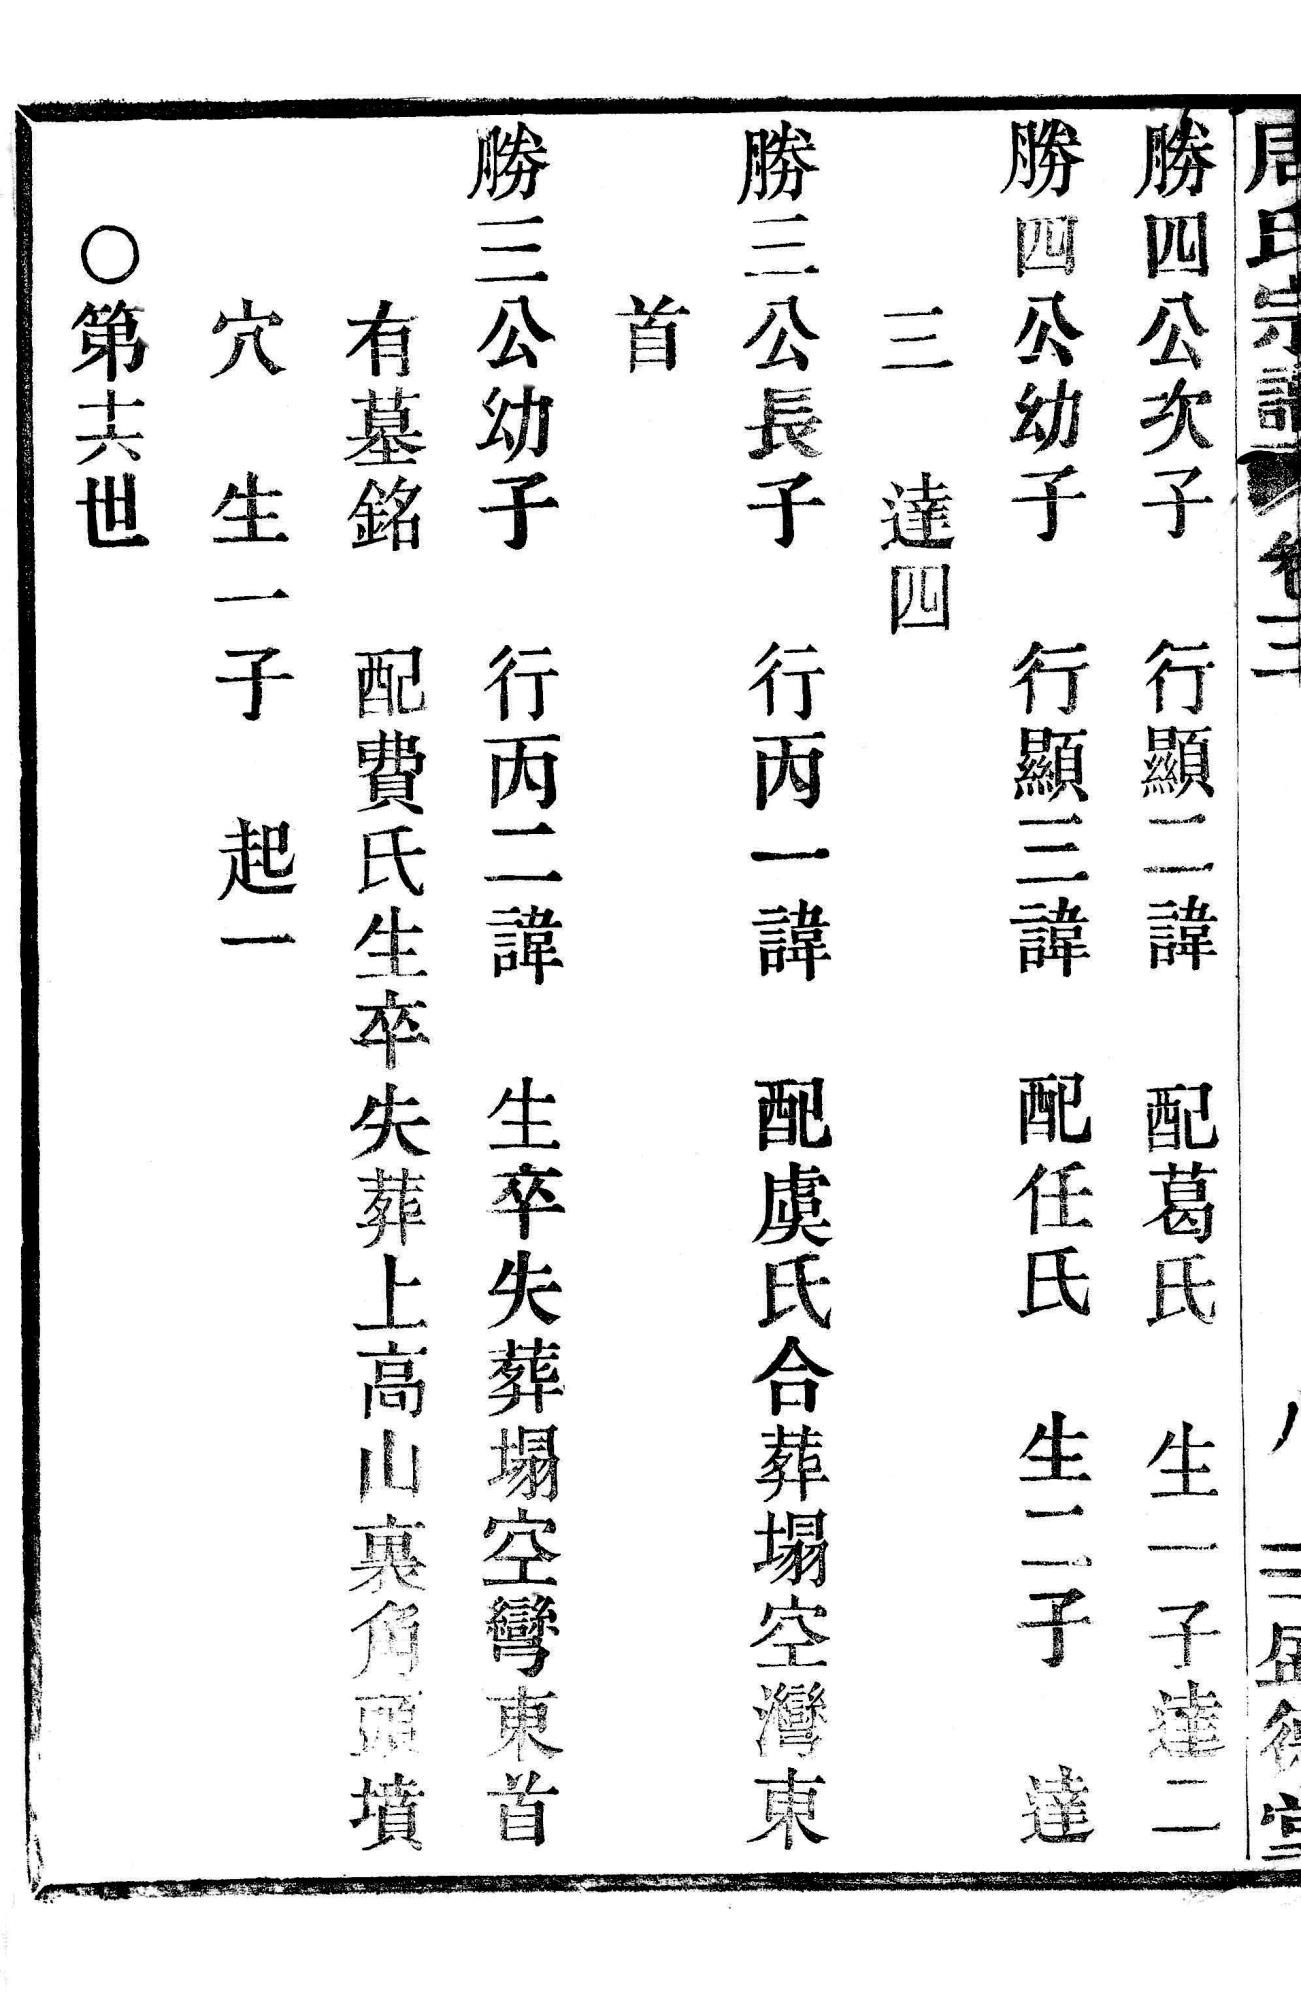 周氏宗譜 卷三 八 三 盛德堂
勝四公次子 行顯二諱 配葛氏 生一子達二
勝四公幼子 行顯三諱 配任氏 生二子 達
三 達四
勝三公長子 行丙一諱 配虞氏合葬塌空灣東
首
勝三公幼子 行丙二諱 生卒失葬塌空彎東首
有墓銘 配費氏生卒失葬上高山裏角頭墳
穴 生一子 起一
〇第十六世